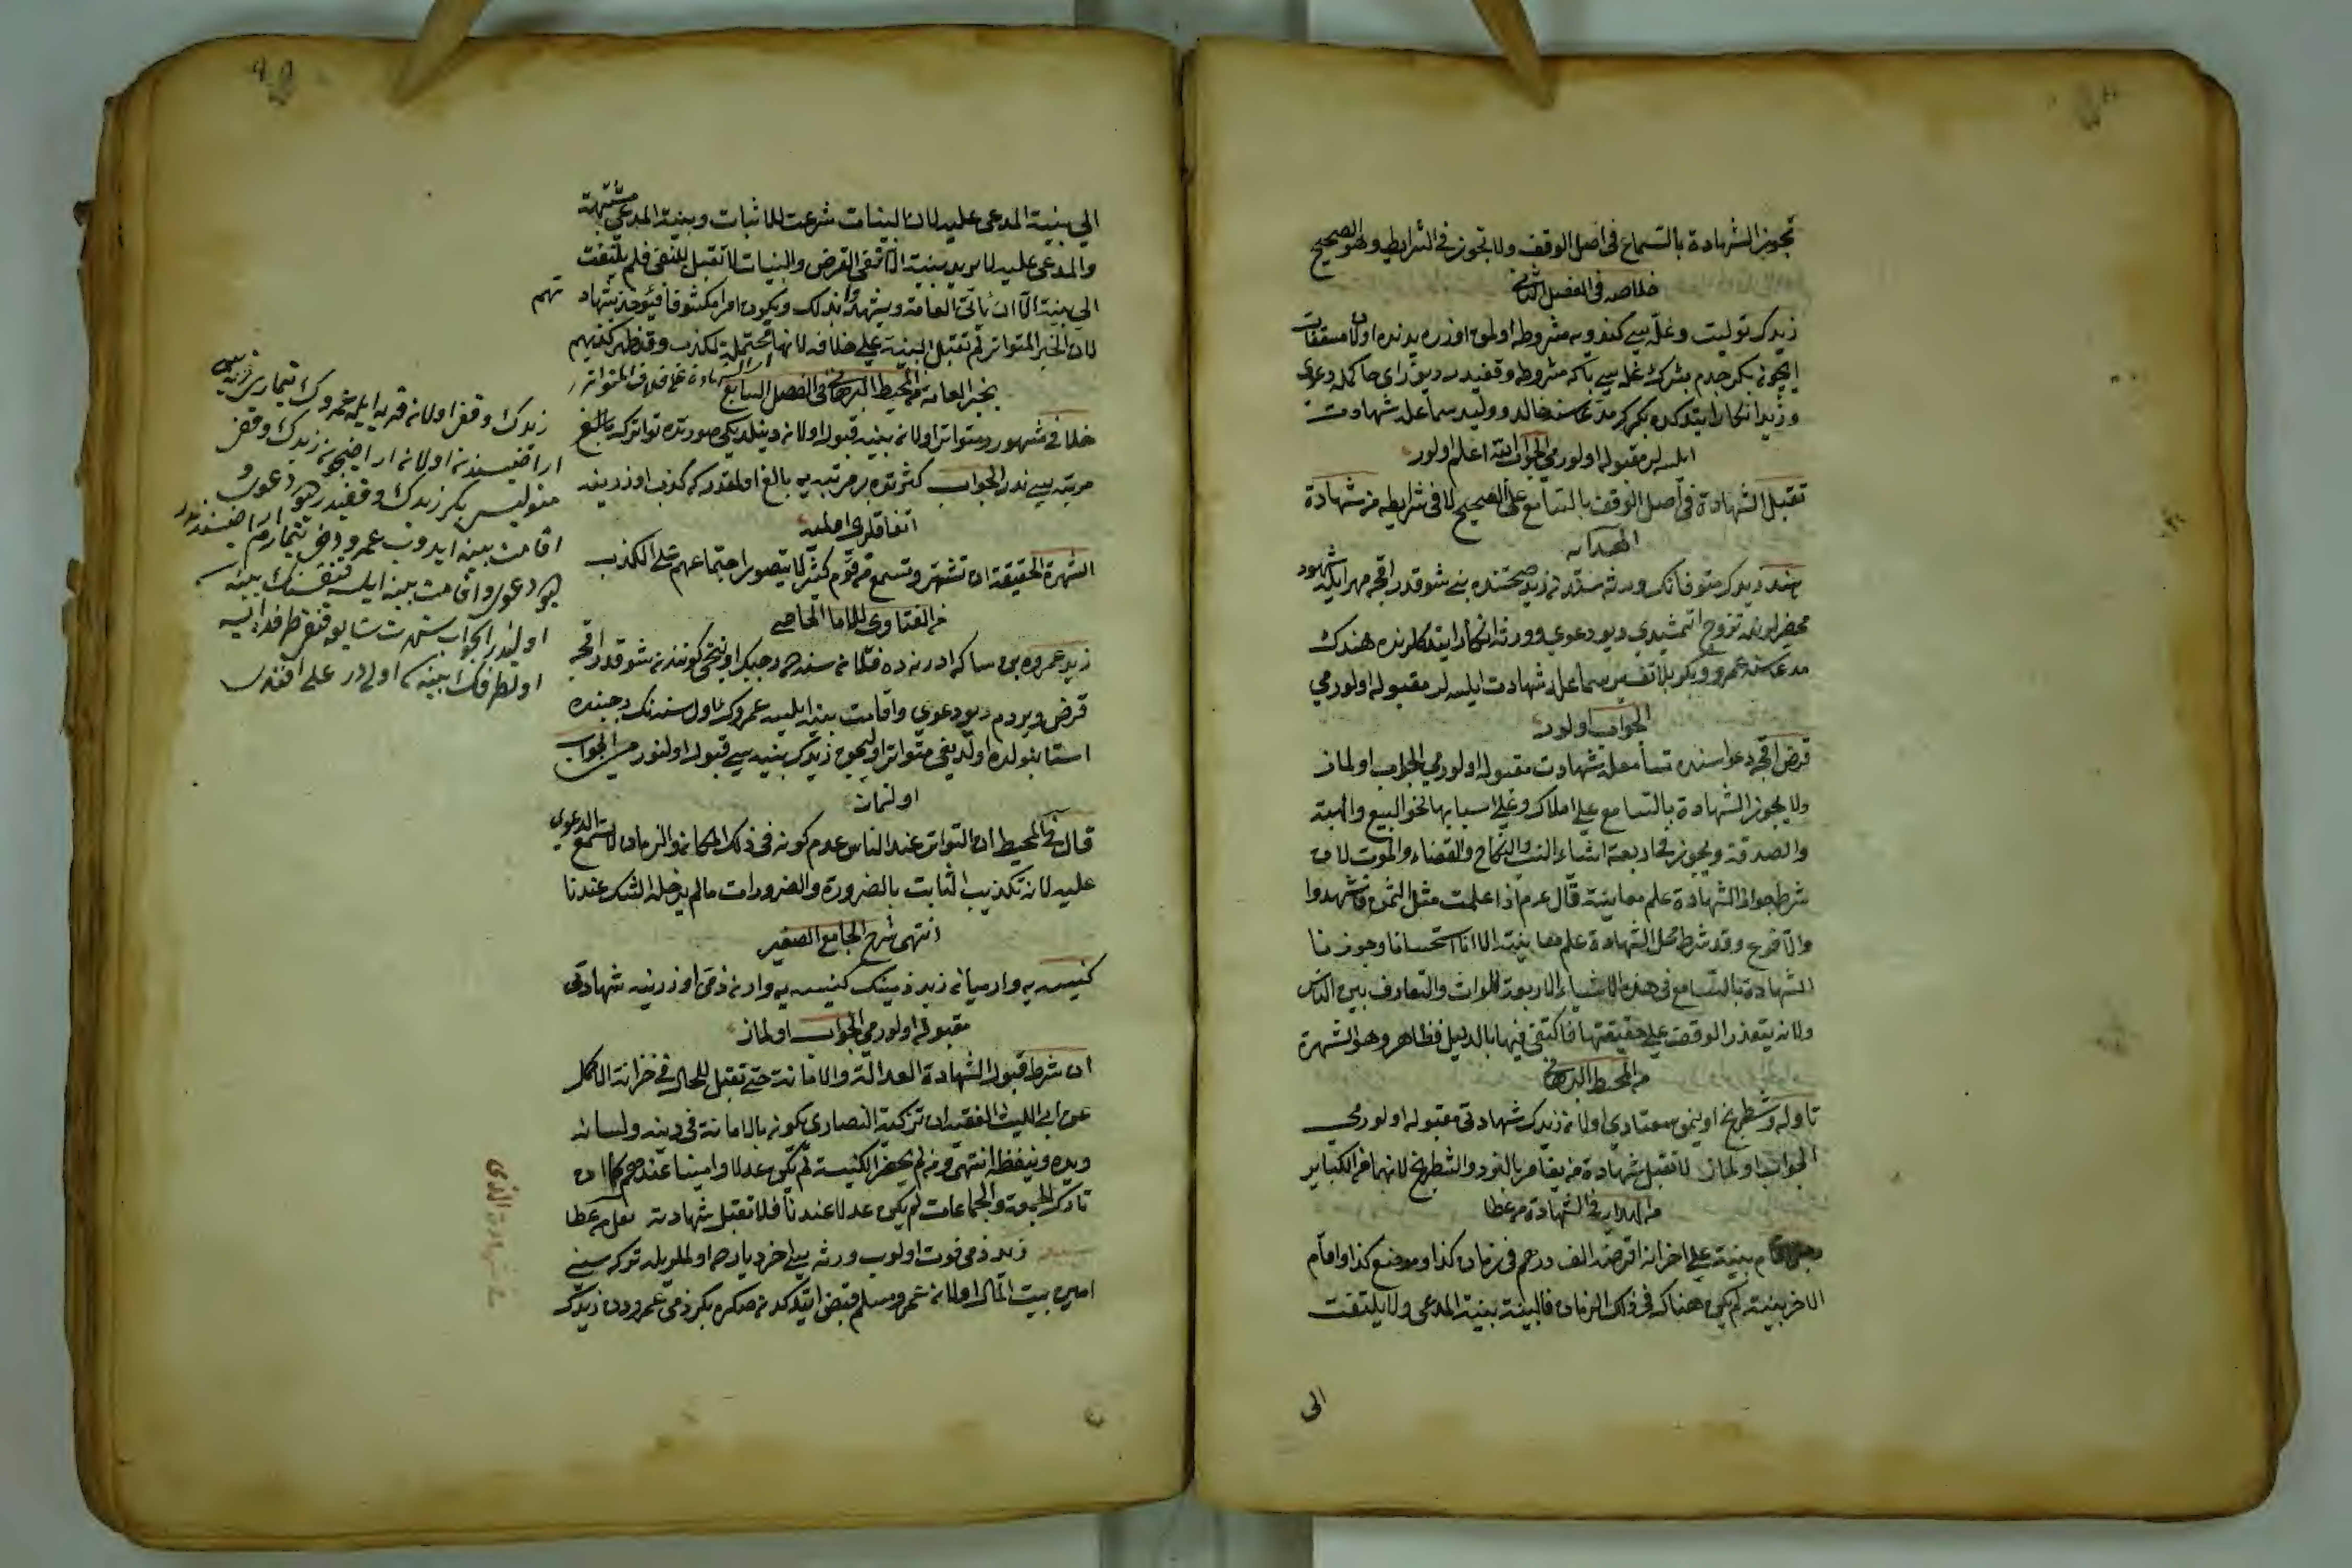 تجوز الشهادة بالتسماع فى اصل الوقف ولا تجوز فى الشرايط وهو الصحيح
خلاصه فى الفصل الثانى
زيدك توليت وغله سى كندويه مشروطه اولمق اوزره يدنده اولان مسقفات
ايچون بكر جدم بشرك غله سى بكا مشروطه وقفيدر ديو راى حاكمله دعوى
وزيد انكار ايتدكده بكرك مدعاسنه خالد ووليد سماعله شهادت
ايلسه لر مقبوله اولورمى الجواب الله اعلم اولور
تقبل الشهادة فى اصل الوقف بالتسامع على الصحيح لا فى شرايطه من شهادة
الهدايه
هند زيدك متوفانك ورثه سندن زيد صحتنده بنى شو قدر اقچه مهر ايله شهود
محضرلرنده تزوج ايتمشيدى ديو دعوى وورثه انكار ايتدكلرنده هندك
مدعاسنه عمرو وبكر بلا تفسير سماعله شهادت ايلسه لر مقبوله اولورمى
الجواب اولور
قرض اقچه دعواسنده تسامعله شهادت مقبوله اولورمى الجواب اولماز
ولا يجوز الشهادة بالتسامع على املاك وعلى اسبابها نحو البيع والهبة
والصدقة ويجوز فى اربعة اشياء النسب والنكاح والقضاء والموت لان
شرط جواز الشهادة علم معاينة قال عم اذا علمت مثل الشمس فاشهدوا
والا فدع وقد شرط لحل الشهادة علم معاينة الا انا استحسانا وجوزنا
الشهادة بالتسامع فى هذه الاشياء الاربعة للتوارث والتعارف بين الناس
ولانه يتعذر الوقف على حقيقتها فاكتفى فيها بالدليل فظاهر وهو الشهرة
من المحيط البرهانى
تاوله وشطرنج اوينمق معتادى اولان زيدك شهادتى مقبوله اولورمى
الجواب اولماز لا تقبل شهادة من يقامر بالنرد والشطرنج لانهما من الكباير
من الهدايه فى الشهادة من عطا
رجل اقام بينة على اخر انه اقرضه الف درهم فى زمان كذا وموضع كذا واقام
الاخر بينة لم يكن هناك فى ذلك الزمان فالبينة بينة المدعى ولا يلتفت
الى
الى بينة المدعى عليه لان البينات شرعت للاثبات وبينة المدعى مثبتة
والمدعى عليه لا يريد ببينة الا نفى القرض والبينات لا تقبل للنفى فلم يلتفت
الى بينة الا ان يأتى العامة ويشهدوا بذلك ويكون امرا مكشوفا فيؤخذ بشهادتهم
لان الخبر المتواتر لم تقبل البينة على خلافه لانها محتملة لكذب وقد ظهر كذبهم
بخبر العامة من المحيط البرهانى فى الفصل السابع
خلافى مشهور ومتواتر اولان بينه قبول اولانه دينلديكى صورتده تواترك بالغ
مرتبه سى ندر الجواب كثرتده بر مرتبه يه بالغ اولمقدر كه كذب اوزرينه
اتفاقلرى اولميه
الشهرة الحقيقة ان تشتهر وتسمع من قوم كثير لا يتصور اجتماعهم على الكذب
من الفتاوى للامام الخاصى
زيد عمروه بن سكا ادرنه ده فلان سنه ده رجبك اوننجى كوننده شو قدر اقچه
قرض ويردم ديو دعوى واقامت بينه ايلسه عمروك اول سنه نك رجبنده
استانبولده اولديغى متواتر اوليجق زيدك بينه سى قبول اولنورمى الجواب
اولنماز
قال فى المحيط ان التواتر عند الناس عدم كونه فى ذلك المكان والزمان لا تسمع الدعوى
عليه لانه تكذيب الثابت بالضرورة والضرورات مالم يدخله الشك عندنا
انتهى شرح الجامع الصغير
كنيسه يه وارميان زيد ذمينك كنيسه يه وارن ذمى اوزرينه شهادتى
مقبوله اولورمى الجواب اولماز
ان شرط قبول الشهادة العدالة والامانة حتى تقبل للحال فى خزانة الاكمل
عن ابى الليث الفقيه ان تزكية النصارى يكون بالامانة فى دينه ولسانه
ويده ويتيقظ انتهى ومن لم يحضر الكنيسة لم يكن عدلا وامينا عندهم كما ان
تارك الجمعة والجماعات لم يكن عدلا عندنا فلا تقبل شهادته نقل من عطا
زيد ذمى فوت اولوب ورثه سى اخر ديارده اولملريله تركه سنى
امين بيت المال اولان عمرو مسلم قبض ايتدكدنصكره بكر ذمى عمرودن زيدك
زيدك وقفى اولان قريه ايله عمروك تيمارى قريه سى
اراضيسندن اولان اراضيچون زيدك وقفى
متوليسى بكر زيدك وقفيدر ديو دعوى و
اقامت بينه ايدوب عمرو دخى تيمارم اراضيسندندر
ديو دعوى واقامت بينه ايلسه قنغيسنك بينه سى
اولنور الجواب شهرت شايعه قنغى طرفده ايسه
اول طرفك بينه سى اولادر على افندى
فى شهادة الذمى